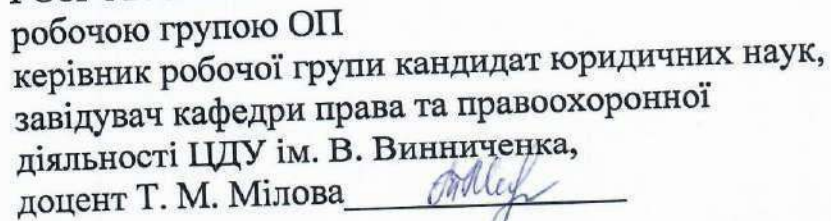 робочою групою ОП
керівник робочої групи кандидат юридичних наук,
завідувач кафедри права та правоохоронної
діяльності ЦДУ ім. В. Винниченка,
доцент Т. М. Мілова